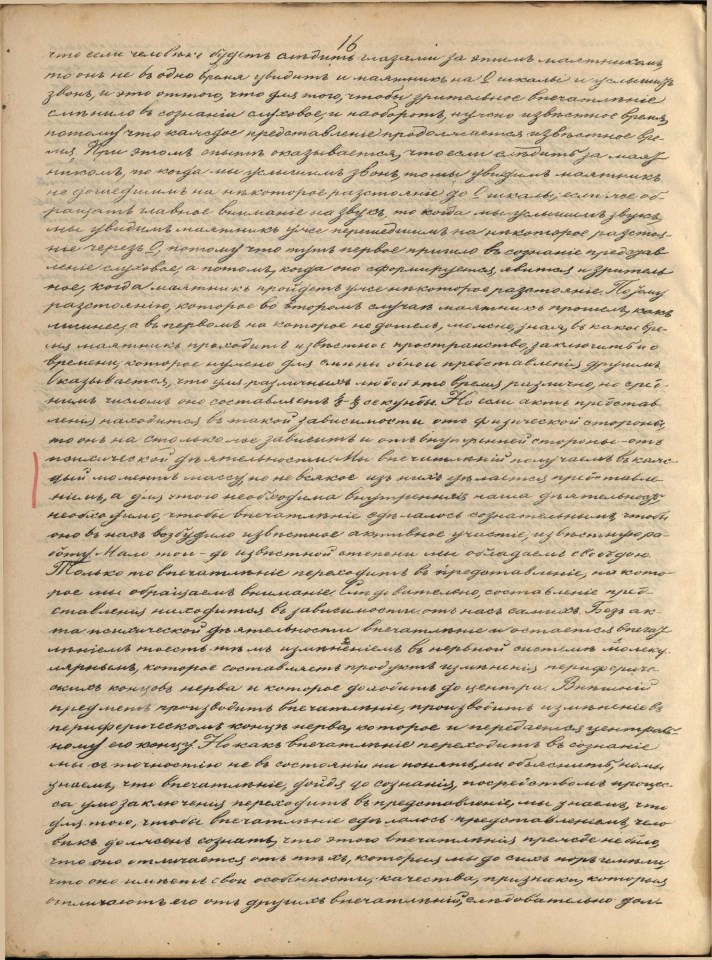 16
что если человѣкъ будетъ слѣдить глазами за этимъ маятникомъ,
то онъ не въ одно время увидитъ и маятникъ на 0 шкалы и услышитъ
звонъ, и это оттого, что для того, чтобы зрительное впечатлѣніе
смѣнило въ сознаніи слуховое, и наоборотъ, нужно извѣстное время,
потому что каждое представленіе продолжается извѣстное вре-
мя. При этомъ опытѣ оказывается, что если слѣдить за маят
никомъ, то когда мы услышимъ звонъ, то мы увидимъ маятникъ
не дошедшимъ на нѣкоторое разстояніе до 0 шкалы, если же об-
ращать главное вниманіе на звукъ, то когда мы услышимъ звукъ,
мы увидимъ маятникъ уже перешедшимъ на нѣкоторое разстоя-
ніе черезъ 0, потому что тутъ первое пришло въ сознаніе представ
леніе слуховое, а потомъ, когда оно сформируется, явится и зритель
ное, когда маятникъ пройдетъ уже нѣкоторое разстояніе. По тому
разстоянію, которое во второмъ случаѣ маятникъ прошелъ, какъ
а въ первомъ на которое не дошелъ, можно, зная, въ какое вре-
мя маятникъ проходитъ извѣстное пространство, заключить и о
времени, которое нужно для смѣны одной представленія другимъ.
Оказывается, что для различныхъ людей это время различно, но сред-
нимъ числомъ оно составляетъ секунды. Но если актъ представ-
ленія находится въ такой зависимости отъ физической стороны,
то онъ на столько же зависитъ и отъ внутренней стороны – отъ
психической дѣятельности. Мы впечатлѣній получаемъ въ каж-
дый моментъ массу, но не всякое изъ нихъ дѣлается представле-
ніемъ, а для этого необходима внутренняя наша дѣятельность
необходимо, чтобы впечатлѣніе сдѣлалось сознательнымъ, чтобы
оно въ насъ возбудило извѣстное активное участіе, извѣстную ра-
боту. Мало того – до извѣстной степени мы обладаемъ свободою.
Только то впечатлѣніе переходитъ въ представленіе, на кото-
рое мы обращаемъ вниманье. Слѣдовательно, составленіе пред-
ставленія находится въ зависимости отъ насъ самихъ. Безъ ак-
та психической дѣятельности впечатлѣніе и остается впечат
лѣніемъ, то есть тѣмъ измѣненіемъ въ нервной системѣ молеку
лярнымъ, которое составляетъ продуктъ измѣненія перифериче-
скихъ концовъ нерва и которое доходитъ до центра. Внѣшній
предметъ производитъ впечатлѣніе, производитъ измѣненіе въ
периферическомъ концѣ нерва, которое и передается централь-
ному его концу. Но какъ впечатлѣніе переходитъ въ сознаніе
мы съ точностію не въ состояніи ни понять, ни объяснить, но мы
знаемъ, что впечатлѣніе, дойдя до сознанія, посредствомъ процес-
са умозаключенія переходитъ въ представленіе, мы знаемъ, что
для того, чтобы впечатлѣніе сдѣлалось представленіемъ, чело
вѣкъ долженъ сознать, что этого впечатлѣнія прежде не было,
что оно отличается отъ тѣхъ, которыя мы до сихъ поръ имѣли,
что оно имѣетъ свои особенности, качества, признаки, которыя
отличаютъ его отъ другихъ впечатлѣній, слѣдовательно долж